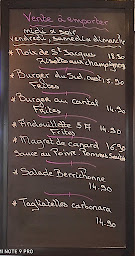 Vente à emporter
midi & soir
vendredi, samedi, dimanche
* Noix de St Jacques 18.90
Risotto aux champignons
* Burger du Sud-ouest 15.90
Frites
* Burger au cantal 14.90
Frites
* Andouillette 5A 14.90
Frites
* Magret de canard 16.90
Sauce au Poivre
* Salade Berrichonne
14.90
* Tagliatelles carbonara
14.90
MI NOTE 9 PRO